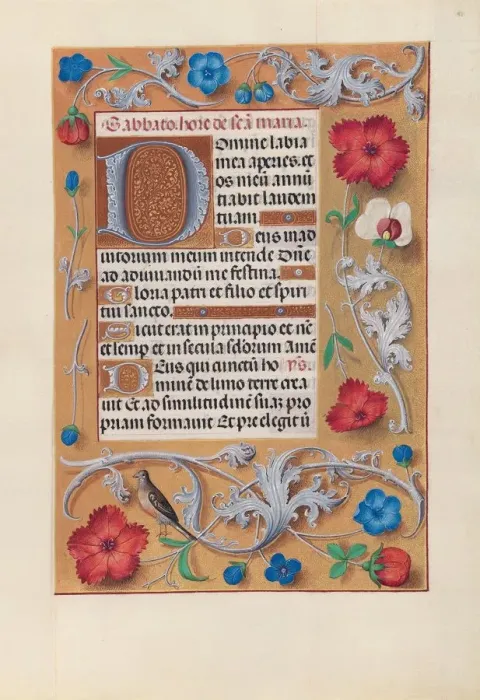 Sabbato. hore de scã maria.
Domine labia
mea aperies. et
os meũ annũ
tiabit laudem
tuam
Deus in ad
iutorium meum intende Dñe
ad adiuuandũ me festina.
Gloria patri et filio et spiri
tui sancto.
Sicut erat in principio et nc̃
et semp et in secula sclorum Amẽ
Deus qui cunctũ ho yp̃s.
minẽ de limo terre crea
uit Et ad similitudinẽ suaz pro
priam formauit Et preelegit ũ